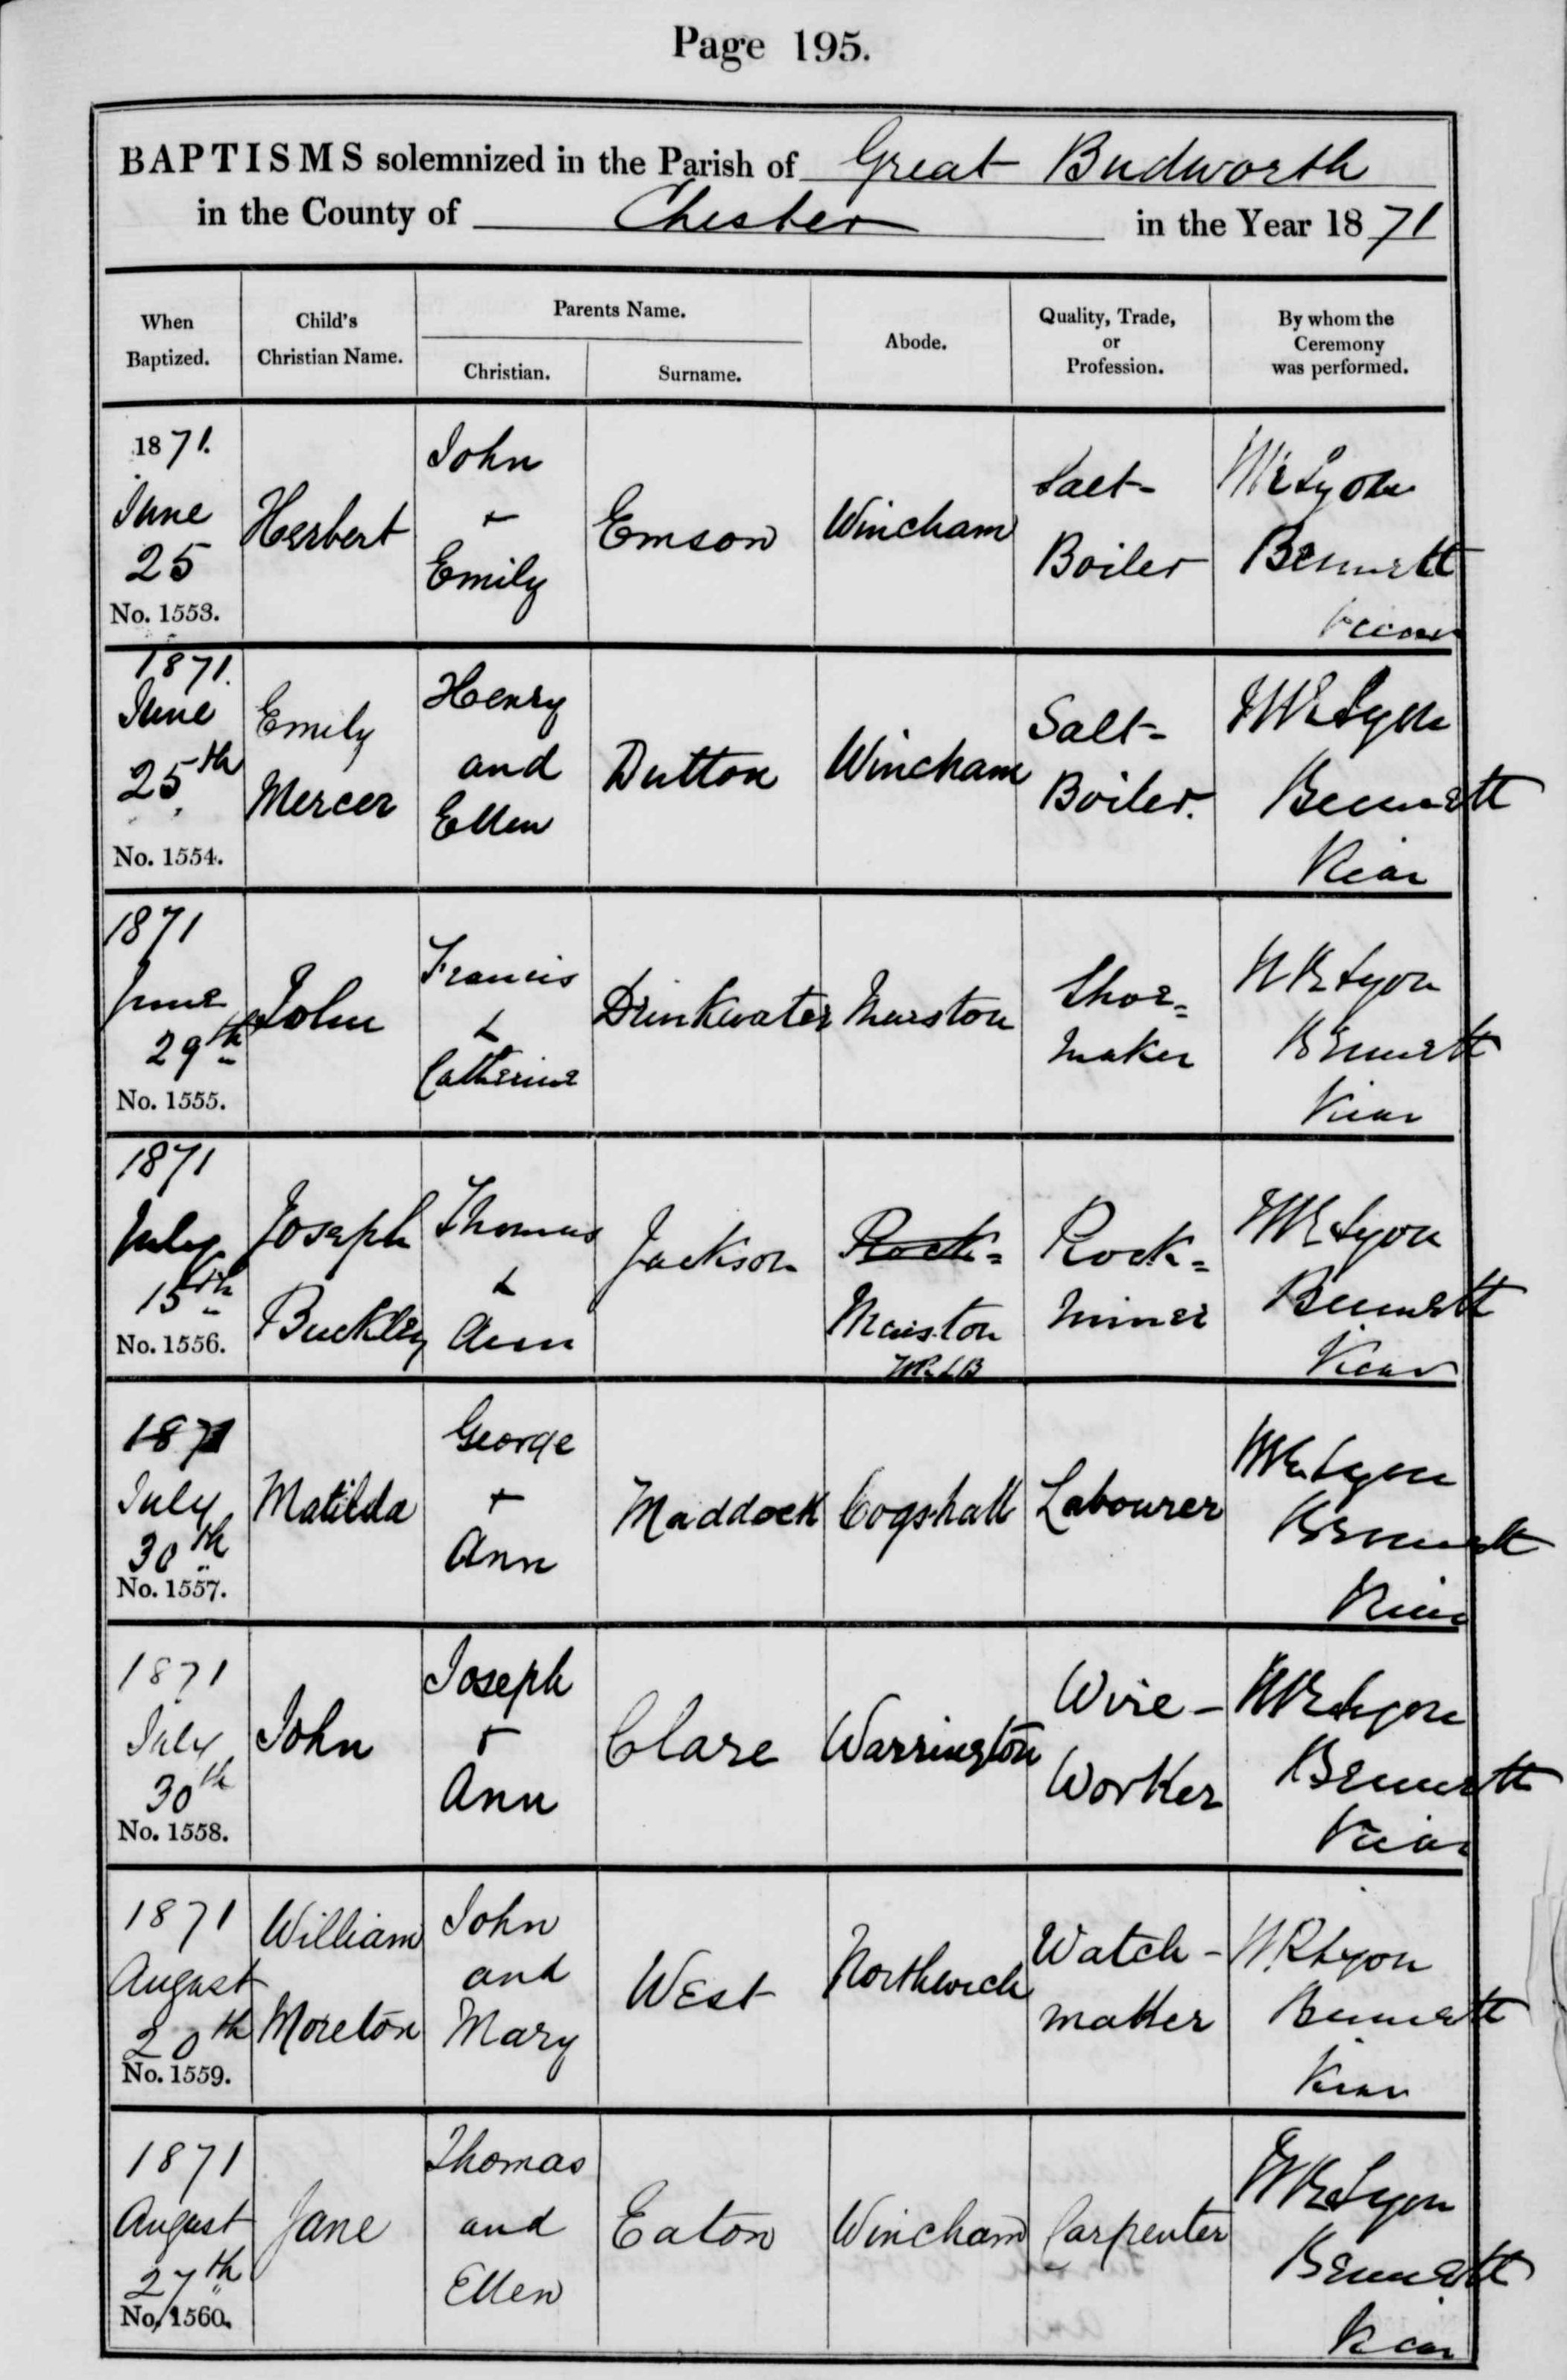 Page 195.
BAPTISMS solemnized in the Parish of Great Budworth
in the County of Chester in the Year 1871
When Baptized.
Child's Christian Name.
Parents Name.
Christian.
Surname.
Abode.
Quality, Trade, or Profession.
By whom the Ceremony was performed.
1871.
June
25
No. 1553.
Herbert
John
+
Emily
Emson
Wincham
Salt-
Boiler
WR Lyon
Bennett
Vicar
1871.
June
25th
No. 1554.
Emily
Mercer
Henry
and
Ellen
Dutton
Wincham
Salt-
Boiler.
WR Lyon
Bennett
Vicar
1871
June
29th
No. 1555.
John
Francis
&
Catherine
Drinkwater
Marston
Shoe=
maker
WR Lyon
Bennett
Vicar
1871
July
15th
No. 1556.
Joseph
Buckley
Thomas
&
Ann
Jackson
Rock=
Marston
WRLB
Rock=
miner
WR Lyon
Bennett
Vicar
1871
July
30th
No. 1557.
Matilda
George
+
Ann
Maddock
Cogshall
Labourer
WR Lyon
Bennett
Vicar
1871
July
30th
No. 1558.
John
Joseph
+
Ann
Clare
Warrington
Wire-
Worker
WR Lyon
Bennett
Vicar
1871
August
20th
No. 1559.
William
Moreton
John
and
Mary
West
Northwich
Watch-
maker
WR Lyon
Bennett
Vicar
1871
August
27th
No. 1560.
Jane
Thomas
and
Ellen
Eaton
Wincham
Carpenter
WR Lyon
Bennett
Vicar